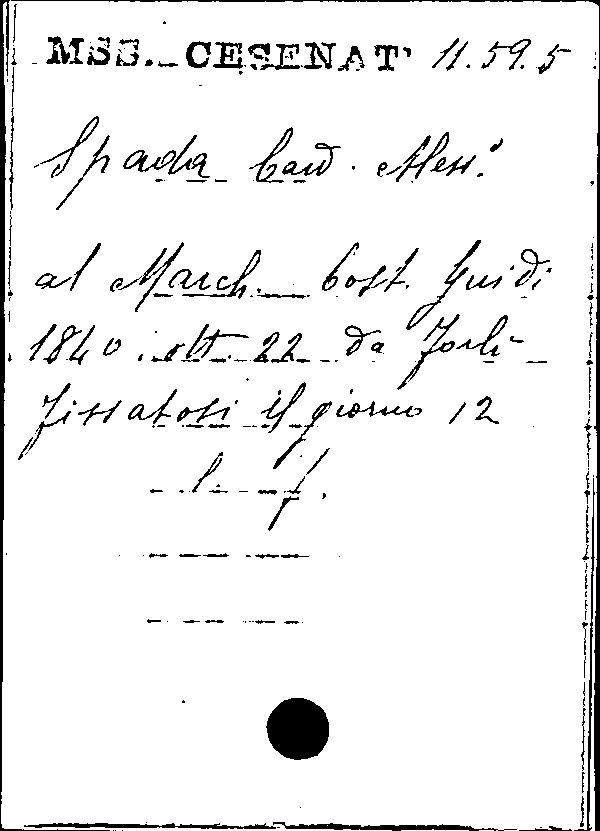 MSS. CESENAT. 11.59.5
Spada Card. Aless.
al March. Cost. Guidi
1840. ott. 22 da Forlì
Fissatosi il giorno 12
l. f.